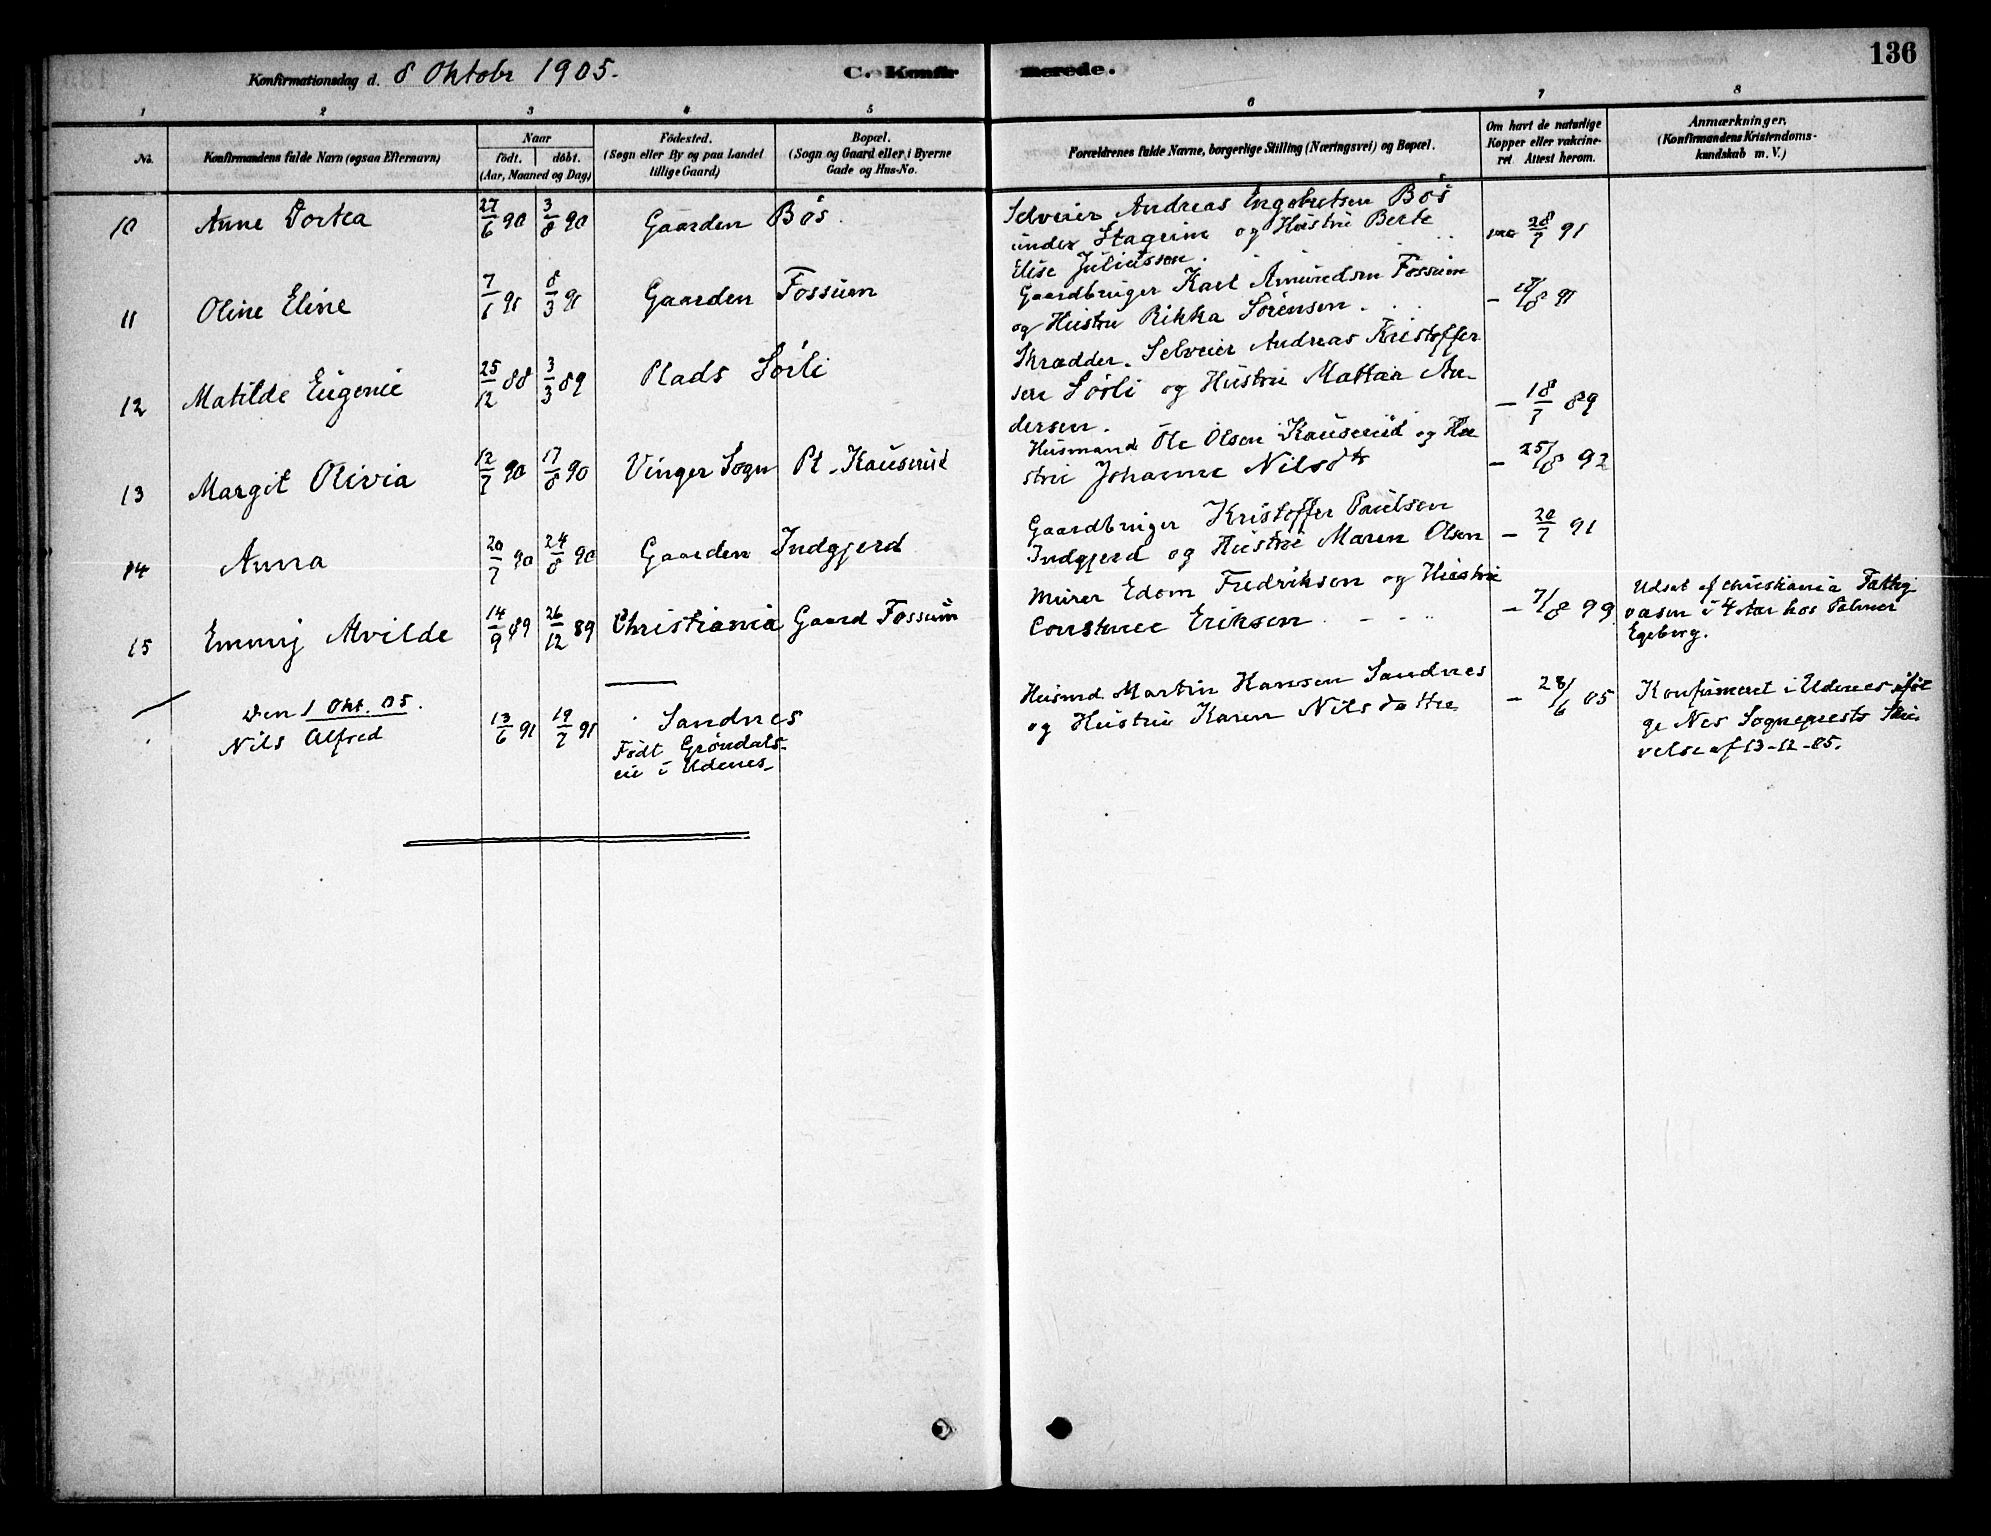 136
Konfirmationsdag d. 8 Oktobr 1905.
C. Konfirmerede.
1 2 3 4 5 6 7 8
No.
Konfirmandens fulde Navn (ogsaa Efternavn)
Naar
født. døbt.
(Aar, Maaned og Dag)
Födested.
(Sogn eller By og paa Landet
tillige Gaard)
Bopæl.
(Sogn og Gaard eller i Byerne
Gade og Hus-No.
Forældrenes fulde Navne, borgerlige Stilling (Næringsvei) og Bopæl.
Om havt de naturlige
Kopper eller vakcine-
ret Attest herom.
Anmærkninger.
(Konfirmandens Kristendoms-
kundskab m. V.)
10 Anne Dortea 27/6 90 3/8 90 Gaarden Bøs.
Selveier Andreas Engebretsen Bøs
under Stagrim og Hustru Berte
Elise Juliussen.
vac 28/7 91
11 Oline Eline 7/1 91 8/3 91 Gaarden Fossum
Gaardbruger Karl Amundsen Fossum
og Hustru Rikka Sörensen.
12 Matilde Eugenie 25/12 88 3/3 89 Plads Sörli
Skrædder. Selveier Andreas Kristoffer
sen Sörli og Hustru Mattea An-
dersen.
— 18/7 89
13 Margit Olivia 12/7 90 17/8 90 Vinger Sogn Pl. Kauserud
Husmand Ole Olsen Kauserud og Hu
stru Johanne Nilsdtr
— 25/8 92
14 Anna 20/7 90 24/8 90 Gaarden Indgjerd
Gaardbruger Kristoffer Paulsen
Indgjerd og Hustru Maren Olsen
— 20/7 91
15 Emmy Alvilde 14/9 89 26/12 89 Christiania Gaard Fossum
Murer Edom Fredriksen og Hustru
Constance Eriksen
— 7/8 99
Udsat af Christiania Fattig
væsen i 4 Aar hos Palmer
Egeberg.
Den 1 Okt. 05.
Nils Alfred 13/6 91 19/7 91 Sandnes
Født Gröndals-
eie i Udenes
Husmd Martin Hansen Sandnes
og Hustru Karen Nilsdatter
— 28/6 05
Konfirmeret i Udenes iföl
ge Nes Sogneprests Skri
velse af 13-12-05.